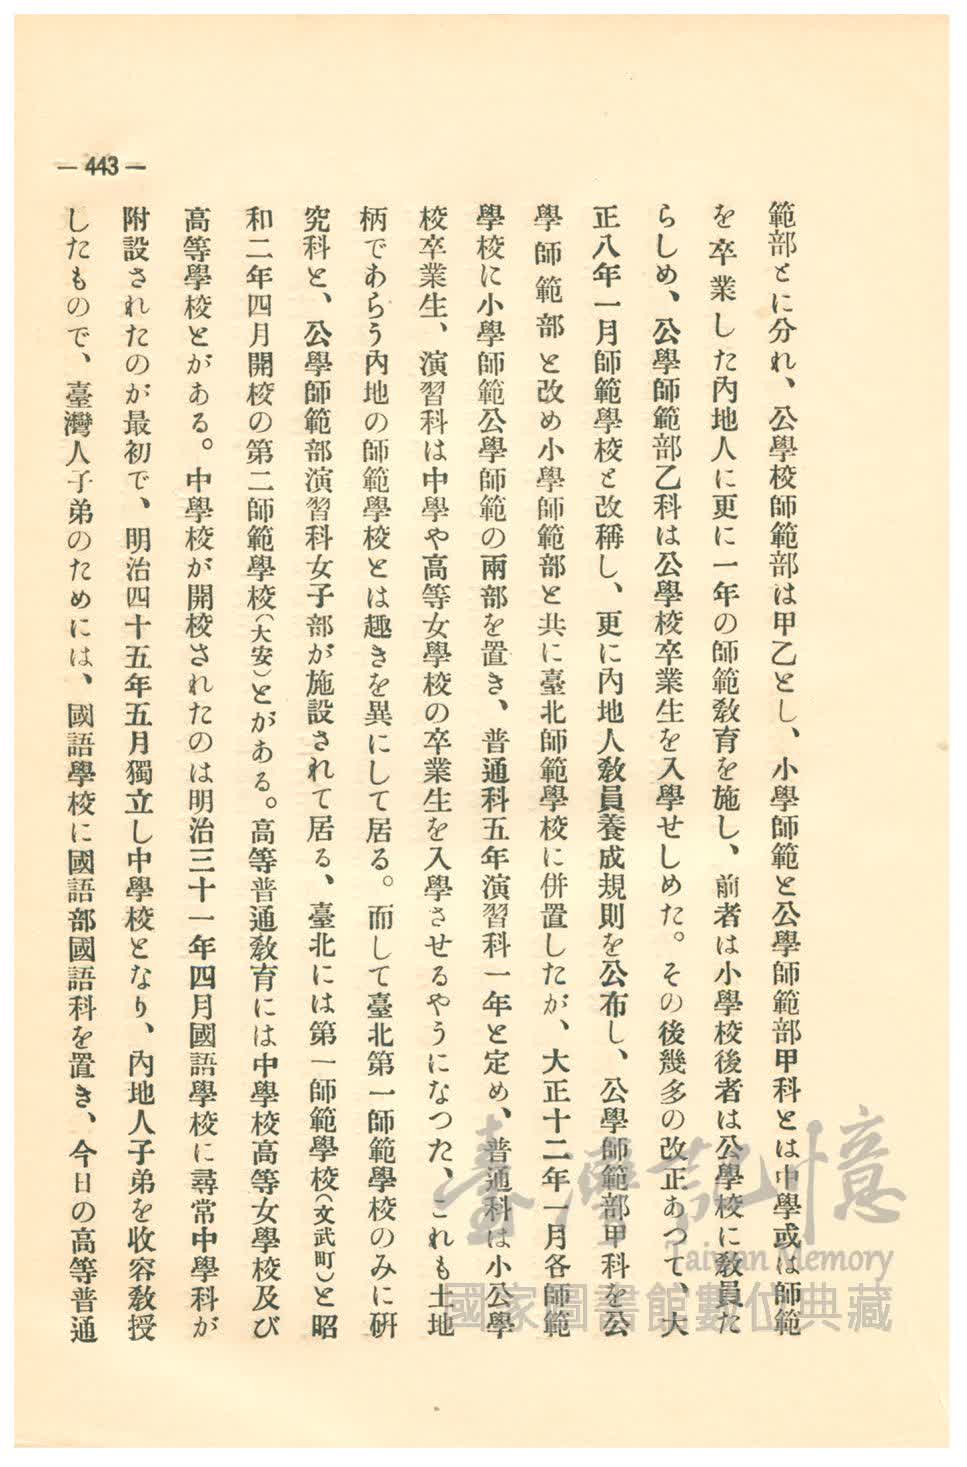 — 443 —
範部とに分れ、公學校師範部は甲乙とし、小學師範と公學師範部甲科とは中學或は師範
を卒業した內地人に更に一年の師範敎育を施し、前者は小學校後者は公學校に敎員た
らしめ、公學師範部乙科は公學校卒業生を入學せしめた。その後幾多の改正あつて、大
正八年一月師範學校と改稱し、更に內地人敎員養成規則を公布し、公學師範部甲科を公
學師範部と改め小學師範部と共に臺北師範學校に併置したが、大正十二年一月各師範
學校に小學師範公學師範の兩部を置き、普通科五年演習科一年と定め、普通科は小公學
校卒業生、演習科は中學や高等女學校の卒業生を入學させるやうになつた、これも土地
柄であらう內地の師範學校とは趣きを異にして居る。而して臺北第一師範學校のみに硏
究科と、公學師範部演習科女子部が施設されて居る、臺北には第一師範學校(文武町)と昭
和二年四月開校の第二師範學校(大安)とがある。高等普通敎育には中學校高等女學校及び
高等學校とがある。中學校が開校されたのは明治三十一年四月國語學校に尋常中學科が
附設されたのが最初で、明治四十五年五月獨立し中學校となり、內地人子弟を收容敎授
したもので、臺灣人子弟のためには、國語學校に國語部國語科を置き、今日の高等普通
臺灣記憶
Taiwan Memory
國家圖書館數位典藏